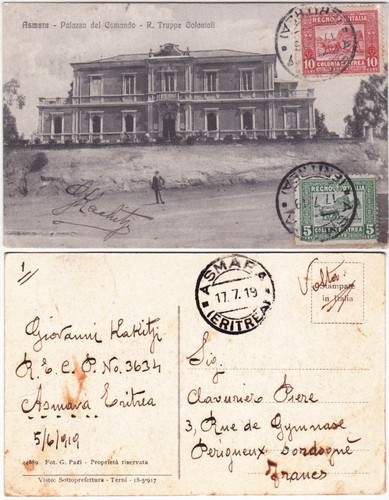 Asmara - Palazzo del Comando - R. Truppe Coloniali
REGNO D'ITALIA
10 10
COLONIA ERITREA
REGNO D'ITALIA
5 5
COLONIA ERITREA
1/
ASMARA
17.7.19
(ERITREA)
Stampate
in Italia
Giovanni Kakitji
R. E. C. P. No. 3634
Asmara Eritrea
5/6/919
Sig.
Clavurier Piere
3, Rue de Gymnase
Perigneux Dordogne
Francs
44869 Fot. G. Pazi - Proprietà riservata
Visto: Sottoprefettura - Terni - 18-5-917